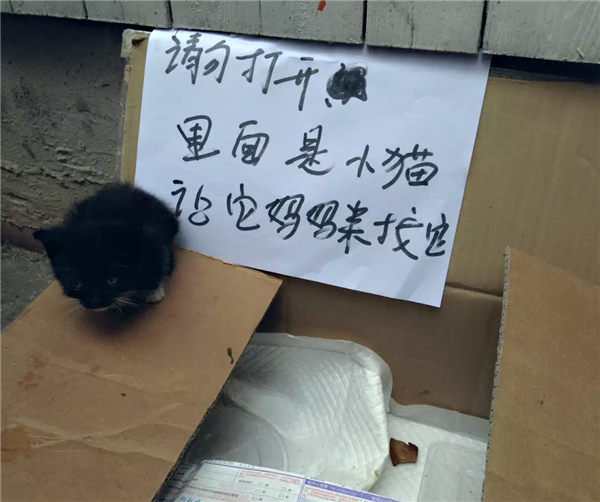 请勿打开
里面是小猫
让它妈妈来找它